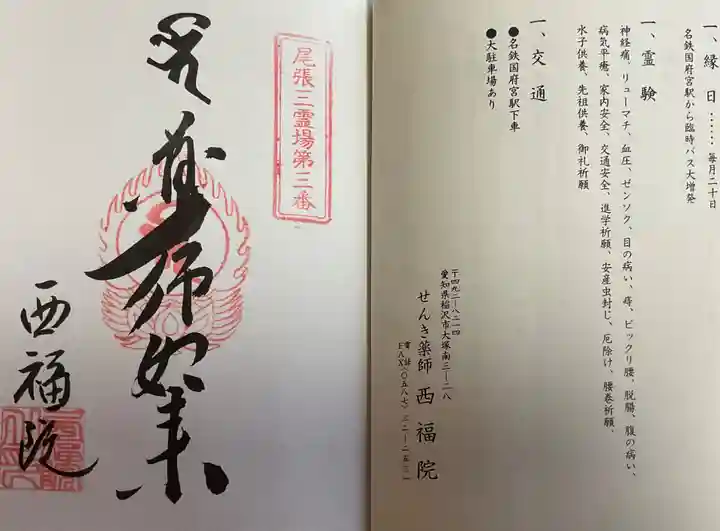 一、縁日……毎月二十日
名鉄国府宮駅から臨時バス大増発
一、霊験
神経痛、リューマチ、血圧、ゼンソク、目の病い、痔、ビックリ腰、脱腸、腹の病い、
病気平癒、家内安全、交通安全、進学祈願、安産虫封じ、厄除け、腰巻祈願、
水子供養、先祖供養、御礼祈願
一、交通
●名鉄国府宮駅下車
●大駐車場あり
〒四九二―八二一四
愛知県稲沢市大塚南三―二八
せんき薬師 西福院
電話
FAX〈〇五八七〉三二―二五三一
尾張三霊場第三番
薬師如来
西福院